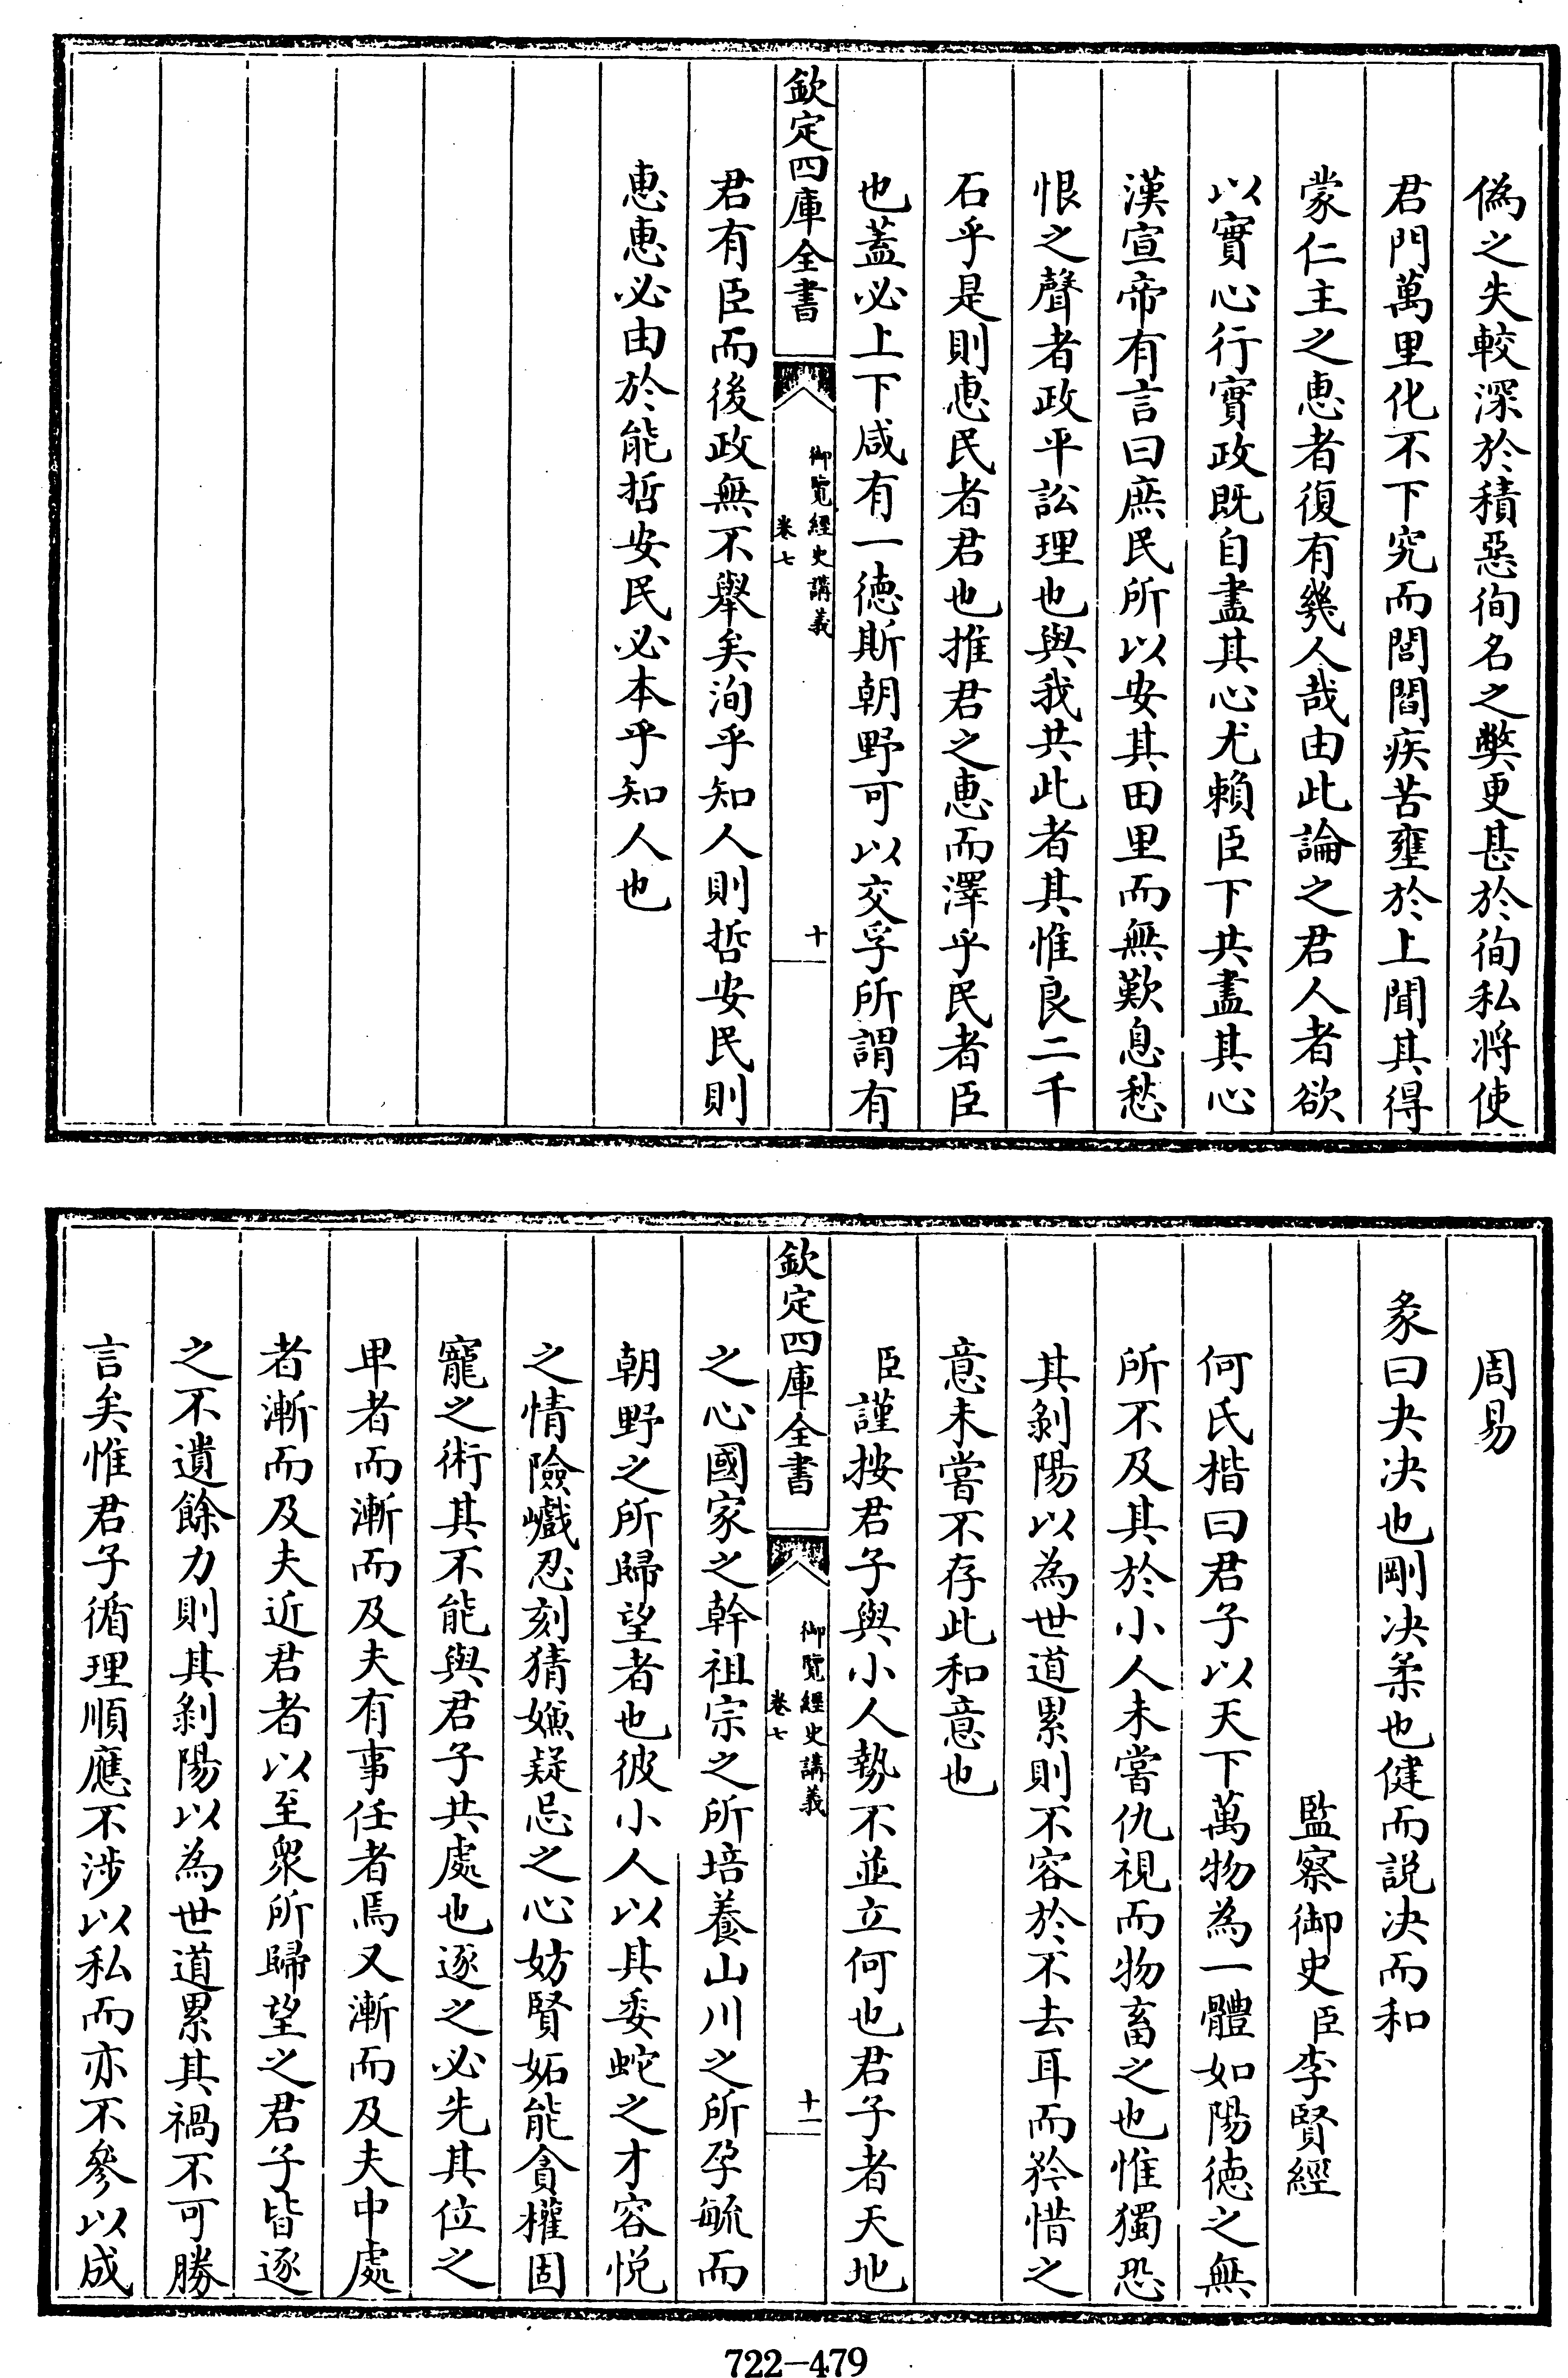 偽之失較深於積惡徇名之弊更甚於徇私將使
君門萬里化不下究而閭閻疾苦壅於上聞其得
蒙仁主之惠者復有幾人哉由此論之君人者欲
以實心行實政既自盡其心尤賴臣下共盡其心
漢宣帝有言曰庶民所以安其田里而無歎息愁
恨之聲者政平訟理也與我共此者其惟良二千
石乎是則惠民者君也推君之惠而澤乎民者臣
也蓋必上下咸有一德斯朝野可以交孚所謂有
欽定四庫全書
御覽經史講義
卷七
十
君有臣而後政無不舉矣洵乎知人則哲安民則
惠惠必由於能哲安民必本乎知人也
周易
彖曰夬决也剛决柔也健而説决而和
監察御史臣李賢經
何氏楷曰君子以天下萬物為一體如陽德之無
所不及其於小人未嘗仇視而物畜之也惟獨恐
其剝陽以為世道累則不容於不去耳而矜惜之
意未嘗不存此和意也
臣謹按君子與小人勢不並立何也君子者天地
欽定四庫全書
御覽經史講義
卷七
十一
之心國家之幹祖宗之所培養山川之所孕毓而
朝野之所歸望者也彼小人以其委蛇之才容悅
之情險巇忍刻猜嫌疑忌之心妨賢妬能貪權固
寵之術其不能與君子共處也逐之必先其位之
卑者而漸而及夫有事任者焉又漸而及夫中處
者漸而及夫近君者以至衆所歸望之君子皆逐
之不遺餘力則其剝陽以為世道累其禍不可勝
言矣惟君子循理順應不涉以私而亦不參以成
722-479